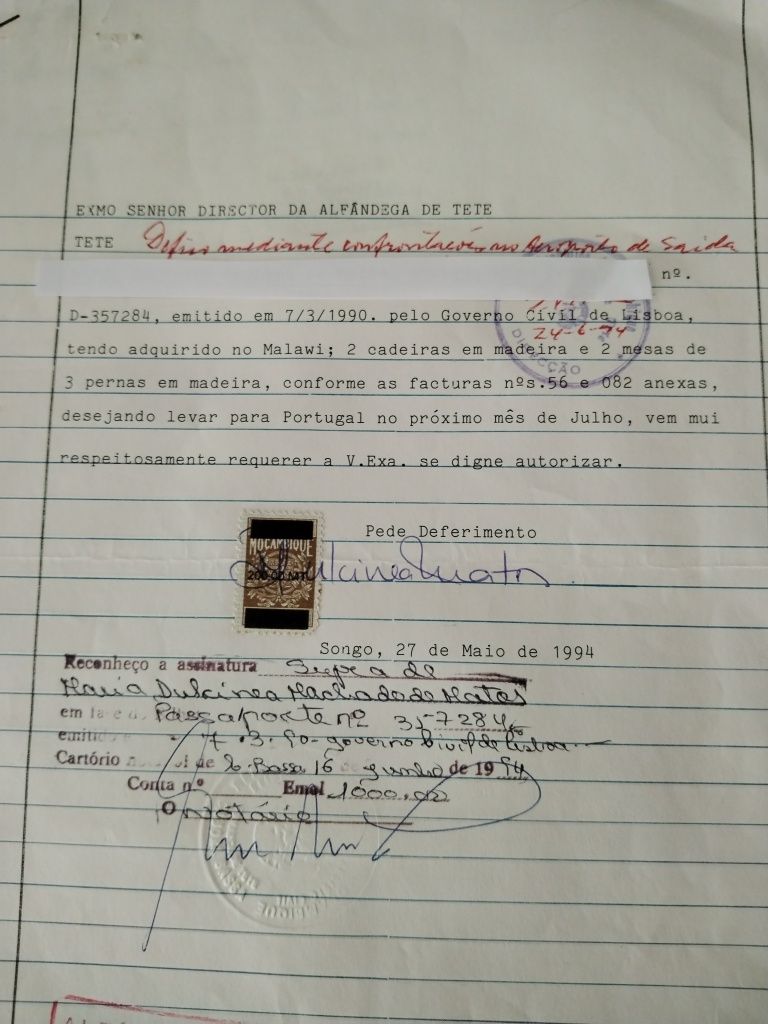 EXMO SENHOR DIRECTOR DA ALFÂNDEGA DE TETE
TETE Defiro mediante confrontações no Aeroporto de Saida
nº.
D-357284, emitido em 7/3/1990. pelo Governo Civil de Lisboa,
24-6-94
tendo adquirido no Malawi; 2 cadeiras em madeira e 2 mesas de
DIRECÇÃO
3 pernas em madeira, conforme as facturas nºs.56 e 082 anexas,
desejando levar para Portugal no próximo mês de Julho, vem mui
respeitosamente requerer a V.Exa. se digne autorizar.
Pede Deferimento
MOÇAMBIQUE
200,00 MT
Dulcinea Matos
Songo, 27 de Maio de 1994
Reconheço a assinatura Supra de
Maria Dulcinea Machado de Matos
em Passaporte nº 357284
emitido 7.3.90 governo Civil de Lisboa
Cartório de C. Bassa 16 Junho de 1994
Conta nº Emol 1000,00
O notário